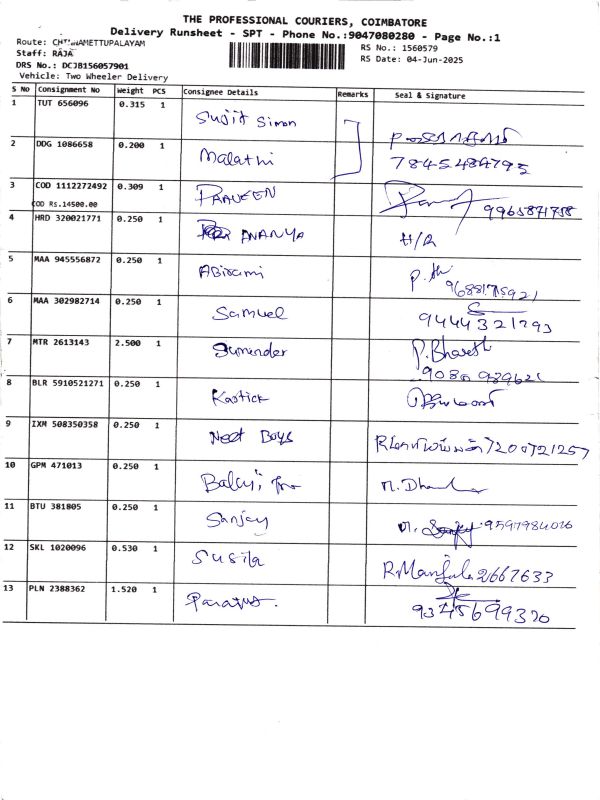 THE PROFESSIONAL COURIERS, COIMBATORE
Delivery Runsheet - SPT - Phone No.:9047080280 - Page No.:1
Route: CHINNAMETTUPALAYAM
Staff: RAJA
DRS No.: DCJB156057901
Vehicle: Two Wheeler Delivery
RS No.: 1560579
RS Date: 04-Jun-2025
S No Consignment No Weight PCS Consignee Details Remarks Seal & Signature
1 TUT 656096 0.315 1 Sujit Simon
2 DDG 1086658 0.200 1 Malathi 7845484795
3 COD 1112272492 0.309 1 PRAVEEN 9965871758
COD Rs.14500.00
4 HRD 320021771 0.250 1 ANANYA H/R
5 MAA 945556872 0.250 1 Abirami
6 MAA 302982714 0.250 1 Samuel 9444321793
7 MTR 2613143 2.500 1 Surrender P.Bharath
8 BLR 5910521271 0.250 1 Kartick
9 IXM 508350358 0.250 1 Neet Boys 7200721257
10 GPM 471013 0.250 1 Balaji
11 BTU 381805 0.250 1 Sanjay 9597984026
12 SKL 1020096 0.530 1 Susila R.Manjula 2667633
13 PLN 2388362 1.520 1 9345699370